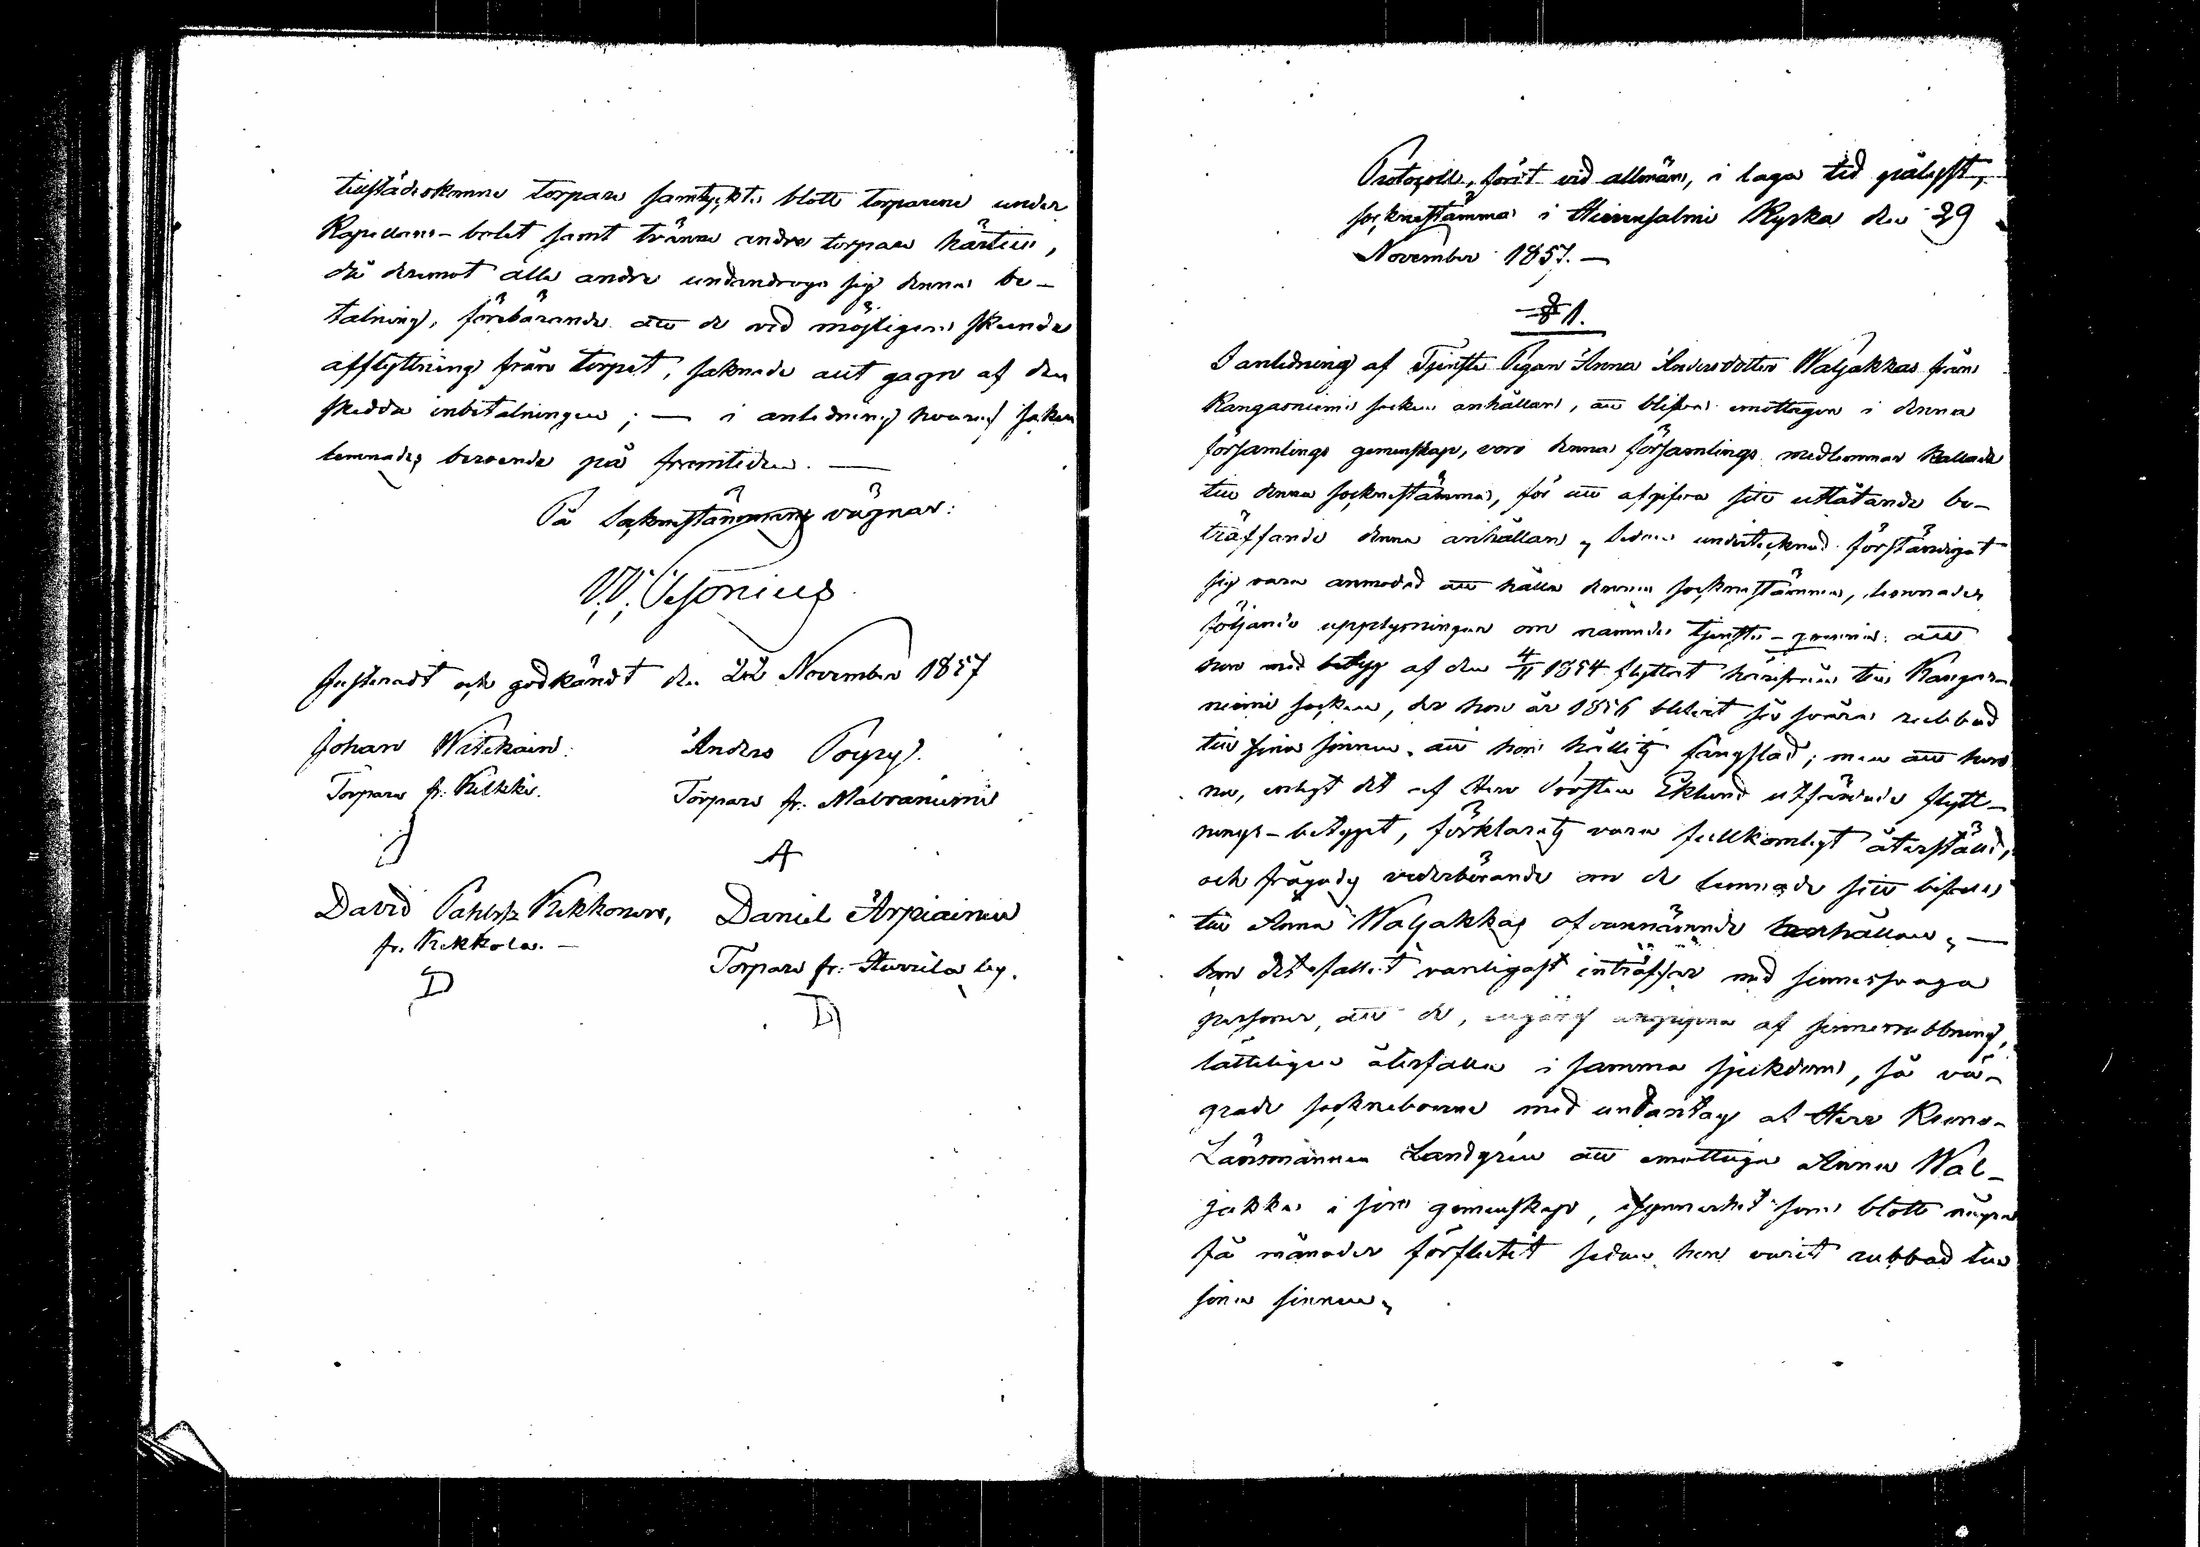 tillstädeskomne torpare samtyckte blott torparene under
Kapellans-bolet samt tvänne andra torpare härtill,
då deremot alla andra undandrogo sig denna be-
talning, förebärande att de vid möjligen skeende
afflyttning från torpet, saknade allt gagn af den
skedda inbetalningen; — i anledning hvaraf saken
lemnades beroende på framtiden. —
På Sockenstämmans vägnar:
W. Cesonius
Justeradt och godkändt den 22 November 1857
Johan Witikain. Anders Pöyry.
Torpare fr. Kilkki. Torpare fr. Matoaniemi
J A
David Pahlsk Kekkonen, Daniel Arpiainen
fr. Kekkola. — Torpare fr. Skeveila by.
D D
Protocoll, fördt vid allmän, i laga tid pålyst,
sockenstämma i Hirvensalmi Kyrka den 29
November 1857. —
§ 1.
I anledning af Tjenste Pigan Anna Andersdotter Waljakkas från
Kangasniemi socken anhållan, att blifva emottagen i denna
församlings gemenskap, voro denna församlings medlemmar kallade
till denna sockenstämma, för att afgifva sitt utlåtande be-
träffande denna anhållan, sedan undertecknad förständigat
sig vara anmodad att hålla denna sockenstämma, lemnades
följande upplysningar om nämnde tjenste-qvinna: att
hon med betyg af den 4/11 1854 flyttat härifrån till Kangas-
niemi socken, der hon år 1856 blifvit så svårt rubbad
till sina sinnen, att hon hållits fängslad; men att hon
nu, enligt det af Herr Prosten Eklund utfärdade flytt-
nings-betyget, förklarats vara fullkomligt återställd,
och frågades vederbörande om de lemnade sitt bifall
till Anna Waljakkas ofvannämnde anhållan, —
Som det fallet vanligast inträffar med sinnessvaga
personer, att de, engång angripna af sinnesrubbning,
lätteligen återfalla i samma sjukdom, så vä-
grade sockneboerne med undantag af Herr Krono-
Länsmannen Landgrén att emottaga Anna Wal-
jakka i sin gemenskap, isynnerhet som blott några
få månader förflutit sedan hon varit rubbad till
sina sinnen,